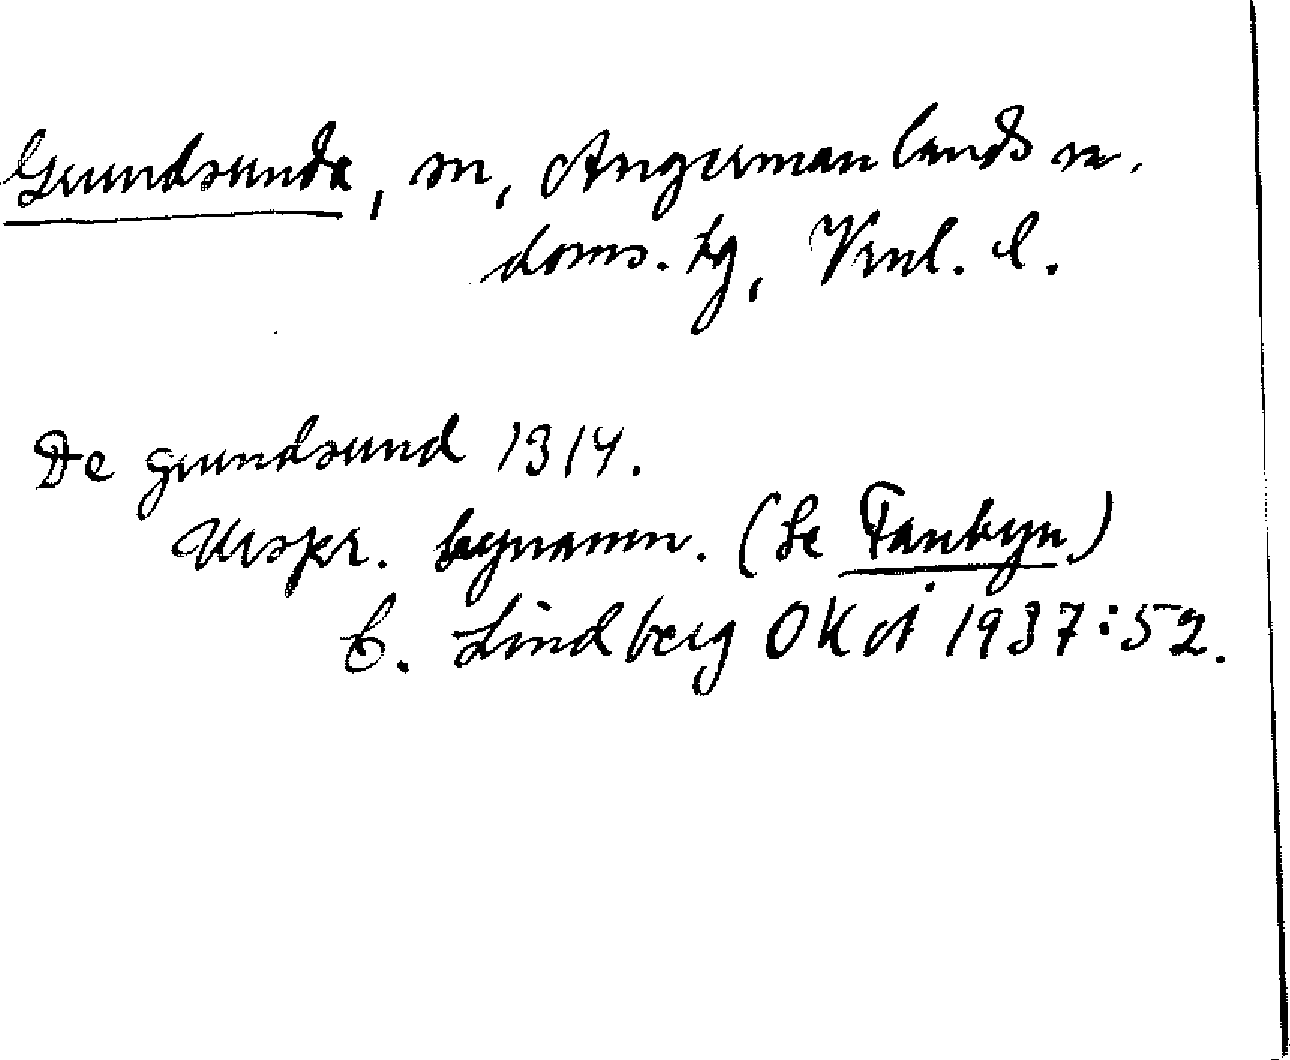 Grundsunda, sn, Ångermanlands n.
doms. hg, Vrnl. l.
De grundsund 1314.
Urspr. bynamn. (Se Fanbyn)
C. Lindberg OKÅ 1937:52.